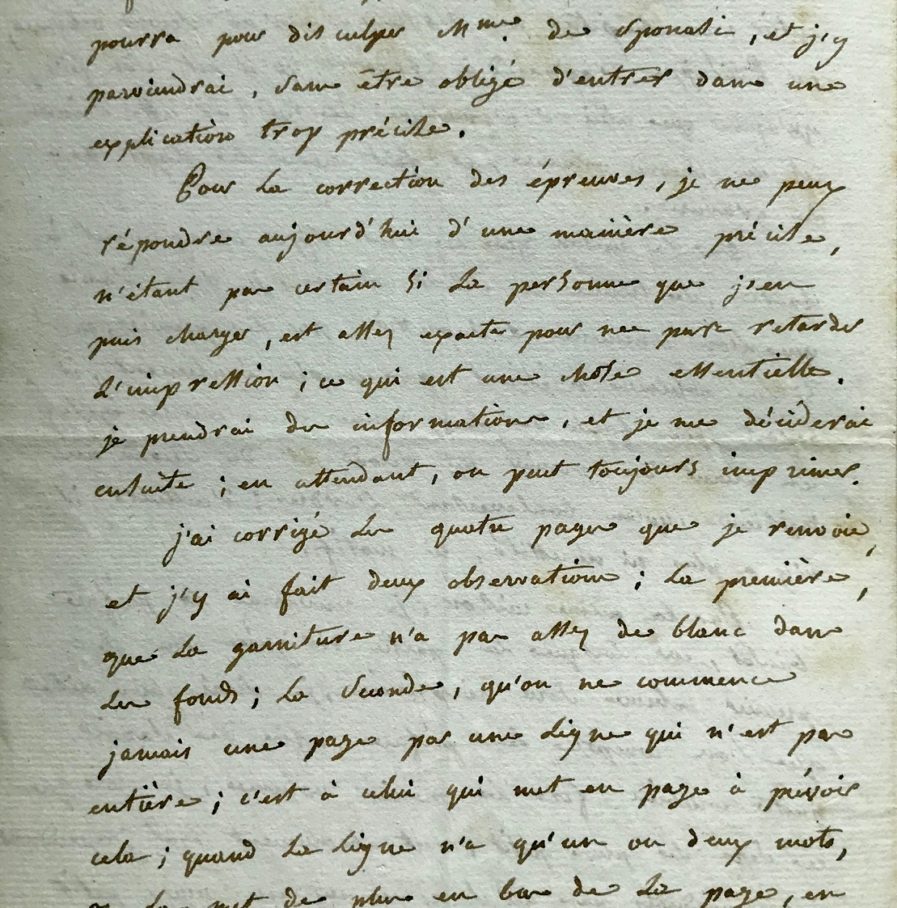 pourra pour disculper Mme. de Sponasi, et j'y
parviendrai, sans être obligé d'entrer dans une
explication trop précise.
Pour la correction des épreuves, je ne peux
répondre aujourd'hui d'une manière précise,
n'étant pas certain si la personne que j'en
puis charger, est assez exacte pour ne pas retarder
l'impression ; ce qui est une chose essentielle.
je prendrai des informations, et je me déciderai
ensuite ; en attendant, on peut toujours imprimer.
j'ai corrigé les quatre pages que je renvoie,
et j'y ai fait deux observations ; la première,
que la garniture n'a pas assez de blanc dans
les fonds ; la seconde, qu'on ne commence
jamais une page par une ligne qui n'est pas
entière ; c'est à celui qui met en page à prévoir
cela ; quand la ligne n'a qu'un ou deux mots,
la met de plus en bas de la page, en